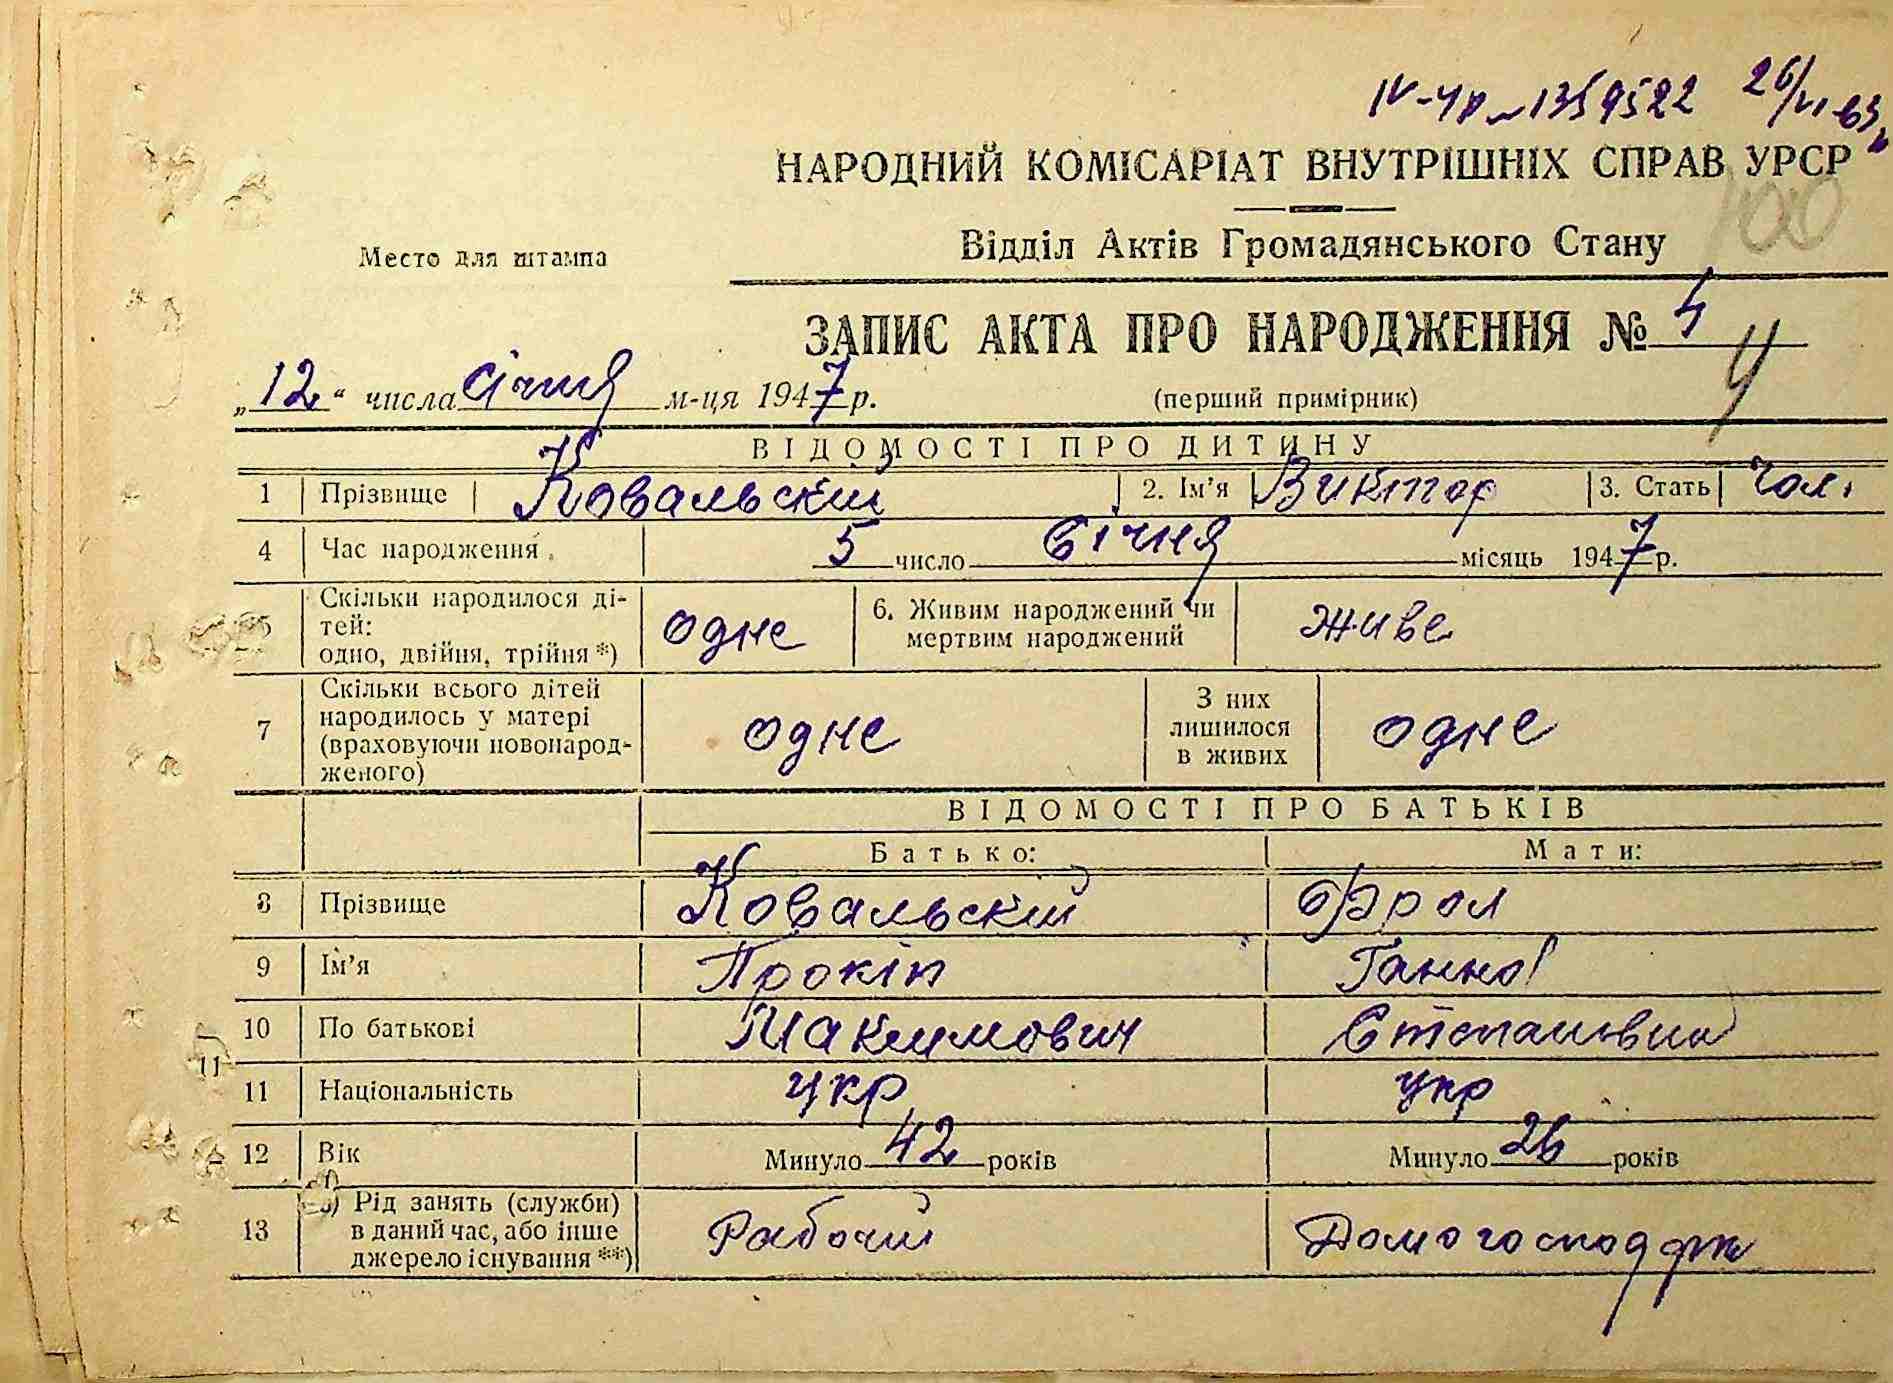 IV-ЧР № 1359522 26/VI-63
НАРОДНИЙ КОМІСАРІАТ ВНУТРІШНІХ СПРАВ УРСР
100
Відділ Актів Громадянського Стану
Место для штампа
ЗАПИС АКТА ПРО НАРОДЖЕННЯ № 4
4
„12“ числа січня м-ця 1947 р.
(перший примірник)
ВІДОМОСТІ ПРО ДИТИНУ
1 Прізвище Ковальский 2. Ім'я Виктор 3. Стать чол.
4 Час народження 5 число Січня місяць 1947 р.
5 Скільки народилося ді-
тей:
одно, двійня, трійня *) одне
6. Живим народжений чи
мертвим народжений живе
7 Скільки всього дітей
народилось у матері
(враховуючи новонарод-
женого) одне
З них
лишилося
в живих одне
ВІДОМОСТІ ПРО БАТЬКІВ
Батько: Мати:
8 Прізвище Ковальскій Фрол
9 Ім'я Прокіп Ганна
10 По батькові Максимович Степановна
11
11 Національність укр укр
12 Вік Минуло 42 років Минуло 26 років
13 Рід занять (служби)
в даний час, або інше
джерело існування **) Рабочий Домогосподарк